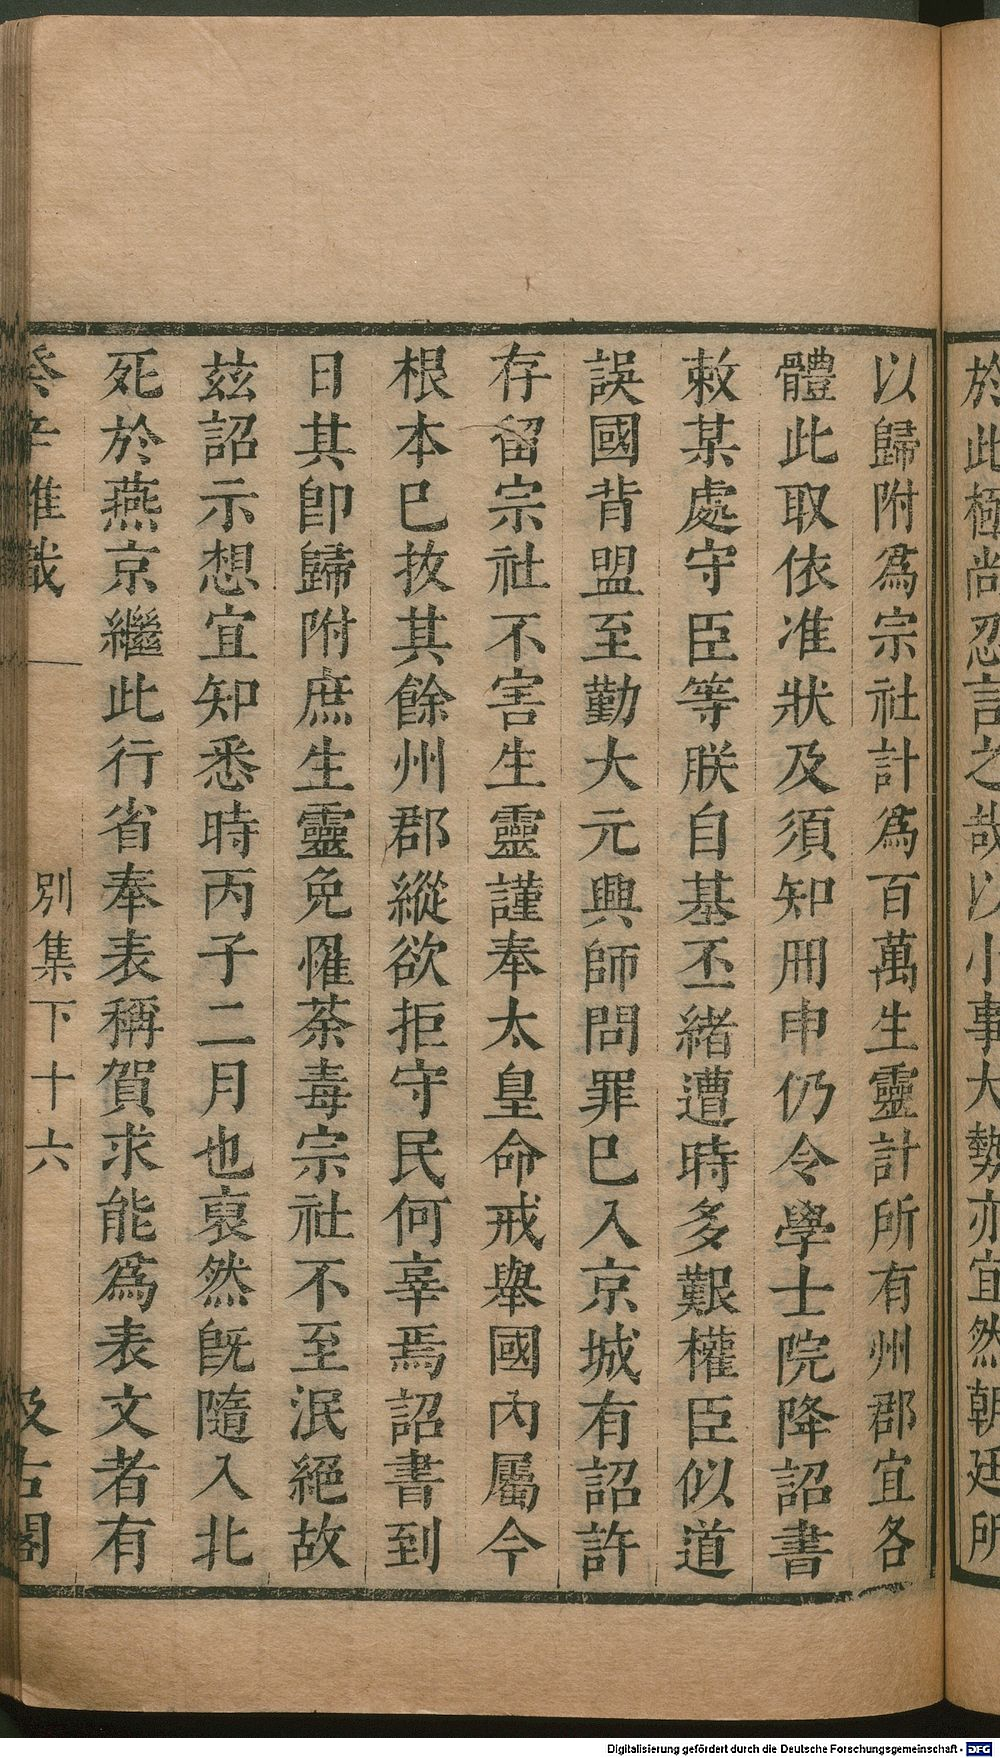 於此極尚忍言之哉以小事大勢亦宜然朝廷所
以歸附爲宗社計爲百萬生靈計所有州郡宜各
體此取依准狀及須知冊申仍令學士院降詔書
敕某處守臣等朕自基丕緒遭時多艱權臣似道
誤國背盟至勤大元興師問罪巳入京城有詔許
存留宗社不害生靈謹奉太皇命戒舉國內屬今
根本巳拔其餘州郡縱欲拒守民何辜焉詔書到
日其卽歸附庶生靈免罹荼毒宗社不至泯絕故
茲詔示想宜知悉時丙子二月也裒然旣隨入北
死於燕京繼此行省奉表稱賀求能爲表文者有
癸辛雜識 別集下十六 汲古閣
Digitalisierung gefördert durch die Deutsche Forschungsgemeinschaft - DFG